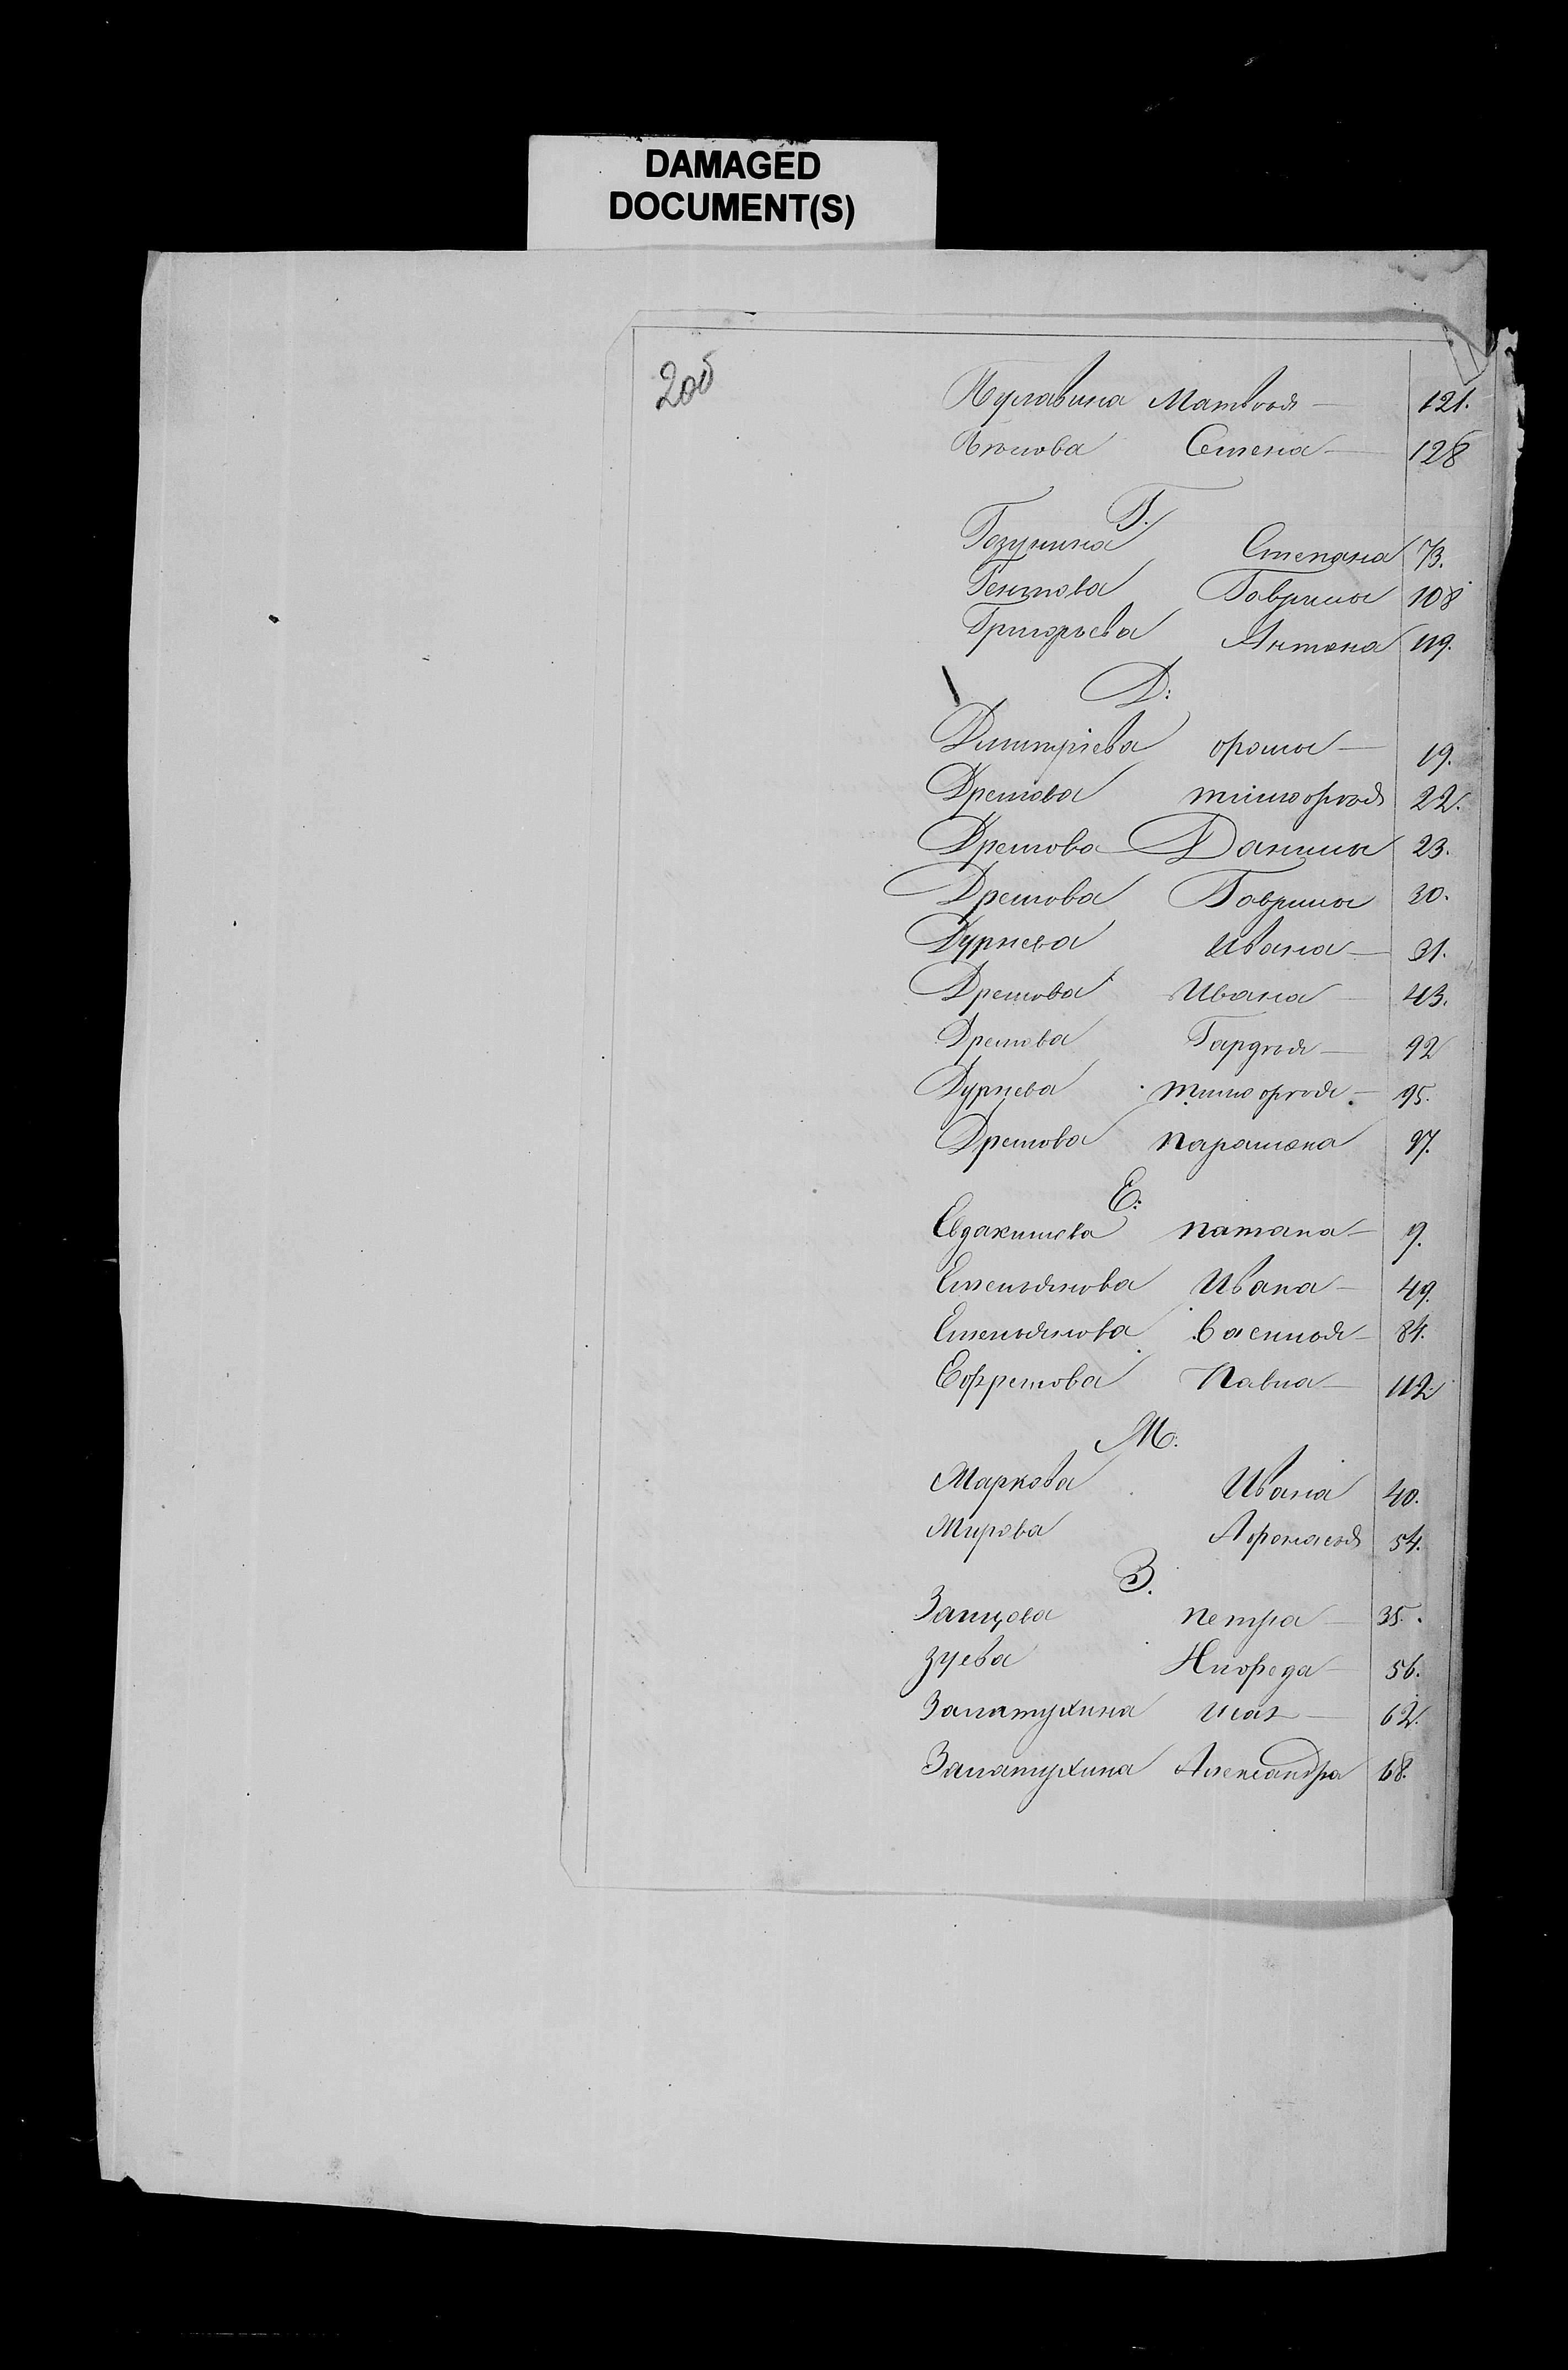 DAMAGED
DOCUMENT(S)
2об
Булавина Матвѣя 121.
Бѣлова Семена 128
Г.
Гозунина Степана 73.
Гентова Гаврилы 108
Григорьева Антона 119.
Д:
Дмитріева фомы 19.
Дремова тимофѣя 22.
Дремова Данилы 23.
Дремова Гаврилы 30.
Дурнева Ивана 31.
Дремова Ивана 43.
Дремова Гардѣя 92
Дурнева тимофѣя 95.
Дремова парамона 97.
Е:
Евдакимова патапа 9.
Емельянова Ивана 49.
Емельянова василья 84.
Ефремова Павла 112
М:
Маркова Ивана 40.
Мирова Афанасья 54.
З.
Запцова петра 35.
зуева Нифеда 56.
Залатухина 62.
Залатухина Александра 68.